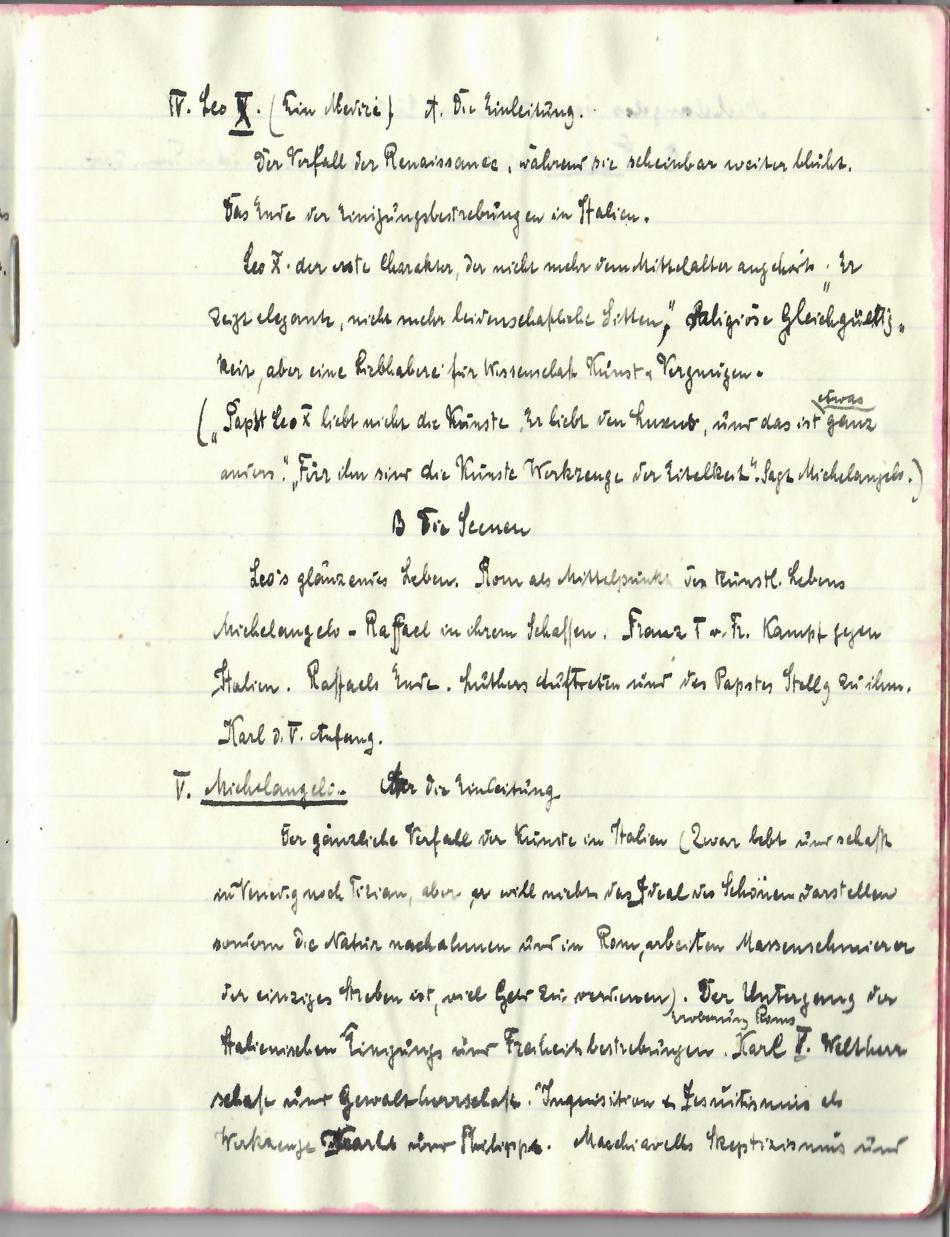 IV. Leo X. (Ein Medizi) A. Die Einleitung.
Der Verfall der Renaissance, während sie scheinbar weiter blüht.
Das Ende der Einigungsbestrebungen in Italien.
Leo X. der erste Charakter, der nicht mehr dem Mittelalter angehört. Er
zeigt elegante, nicht mehr leidenschaftliche Sitten, "Religiöse Gleichgültig-
keit, aber eine Liebhaberei für Wissenschaft Kunst u Vergnügen.
("Papst Leo X liebt nicht die Künste. Er liebt den Luxus, und das ist etwas ganz
anders". "Für ihn sind die Künste Werkzeuge der Eitelkeit". Sagt Michelangelo.)
B Die Scenen
Leo's glänzendes Leben. Rom als Mittelpunkt des künstl. Lebens
Michelangelo - Raffael in ihrem Schaffen. Franz I v. Fr. Kampf gegen
Italien. Raffaels Ende. Luthers Auftreten und des Papstes Stellg zu ihm.
Karl d. V. Anfang.
V. Michelangelo. die Einleitung
Der gänzliche Verfall der Künste in Italien (Zwar lebt und schafft
in Venedig noch Tizian, aber er will nicht das Ideal des Schönen darstellen
sondern die Natur nachahmen und in Rom, arbeiten Massenschmierer
der einziges Streben ist, viel Geld zu verdienen). Der Untergang der
Eroberung Roms
Italienischen Einigungs und Freiheitsbestrebungen. Karl V. Weltherr
schaft und Gewaltherrschaft. Inquisition & Jesuitismus als
Werkzeuge Karls und Philipps. Macchiavells Skeptizismus und